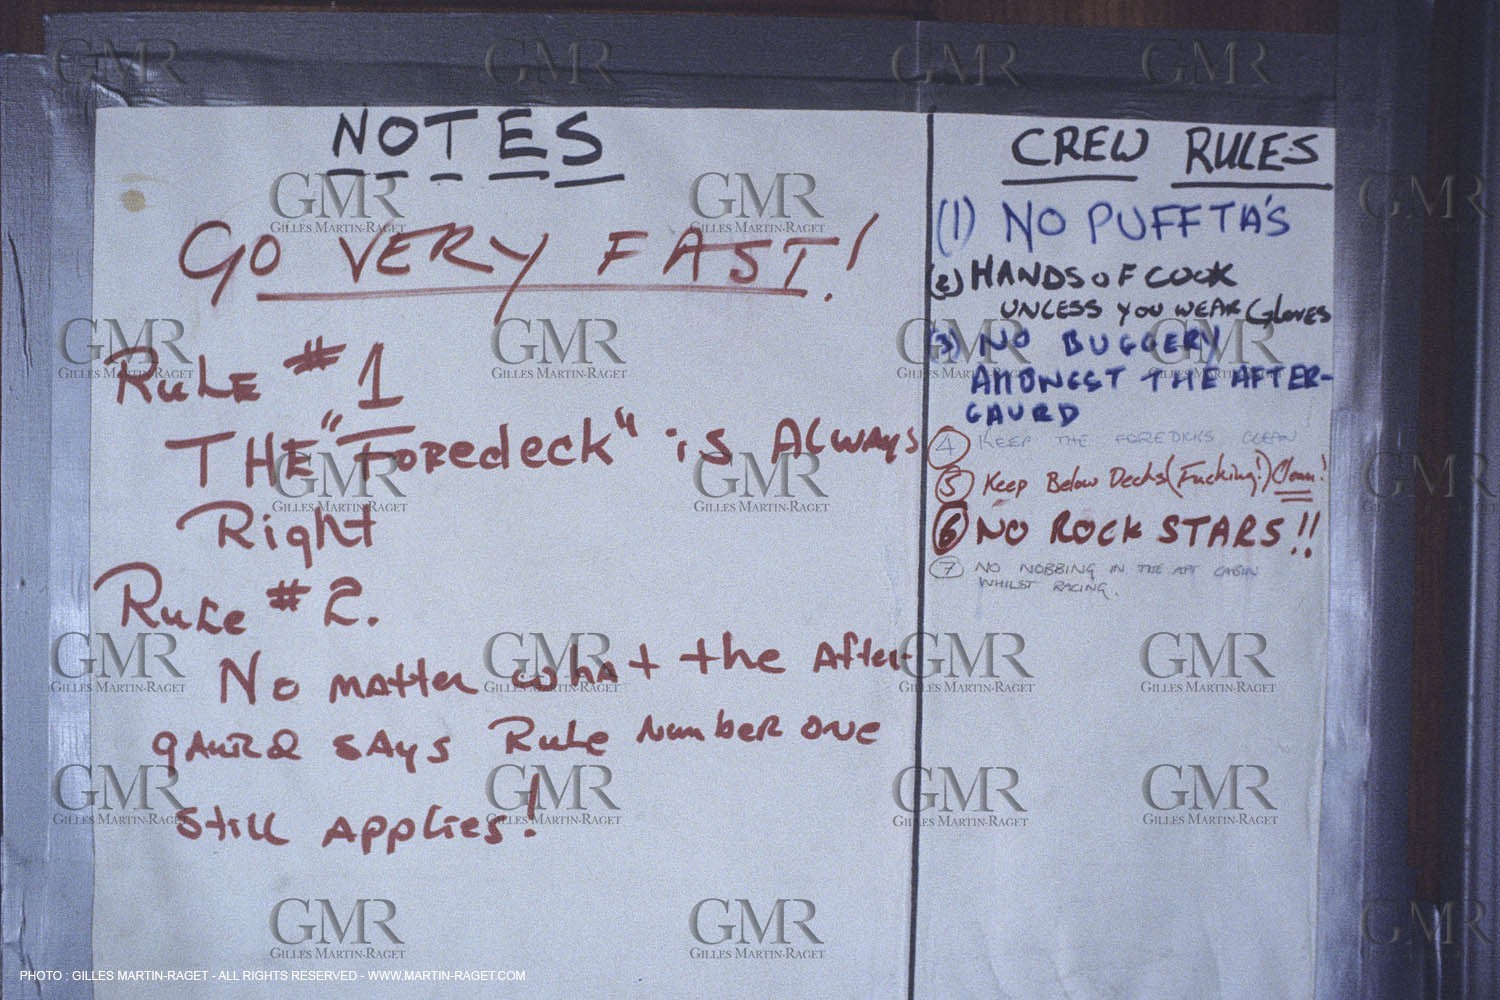 NOTES
GO VERY FAST!
RULE #1
THE "FOREdeck" is ALWAYS
Right
RULE #2.
No matter what the After-
gaurd says Rule number one
still applies!
CREW RULES
(1) NO PUFFTA'S
(2) HANDS OF COOK
UNLESS YOU WEAR Gloves
(3) NO BUGGERY
AMONGEST THE AFTER-
GAURD
4 KEEP THE FOREDICKS CLEAN!
5 Keep Below Decks (Fucking!) Clean!
6 NO ROCK STARS!!
7 NO NOBBING IN THE AFT CABIN
WHILST RACING.
GMR
GILLES MARTIN-RAGET
PHOTO : GILLES MARTIN-RAGET - ALL RIGHTS RESERVED - WWW.MARTIN-RAGET.COM